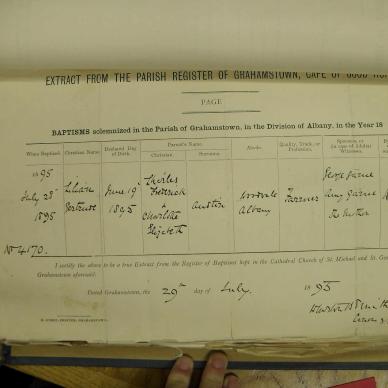 EXTRACT FROM THE PARISH REGISTER OF GRAHAMSTOWN, CAPE OF GOOD HO
PAGE
BAPTISMS solemnized in the Parish of Grahamstown, in the Division of Albany, in the Year 18
When Baptised. Christian Name. Declared Day of Birth. Parent's Name. Christian. Surname. Abode. Quality, Trade, or Profession. Sponsors, or in case of Adults Witnesses.
1895
July 28th
1895
No 4170.
Lilian
Gertrude
June 19
1895
Charles
Frederick
&
Charlotte
Elizabeth
Austin
Albany
Farmer
George
Amy
The Mother
I certify the above to be a true Extract from the Register of Baptisms kept in the Cathedral Church of St. Michael and St. Geo
Grahamstown aforesaid.
Dated Grahamstown, the 29th day of July. 1895
PRINTER, GRAHAMSTOWN.